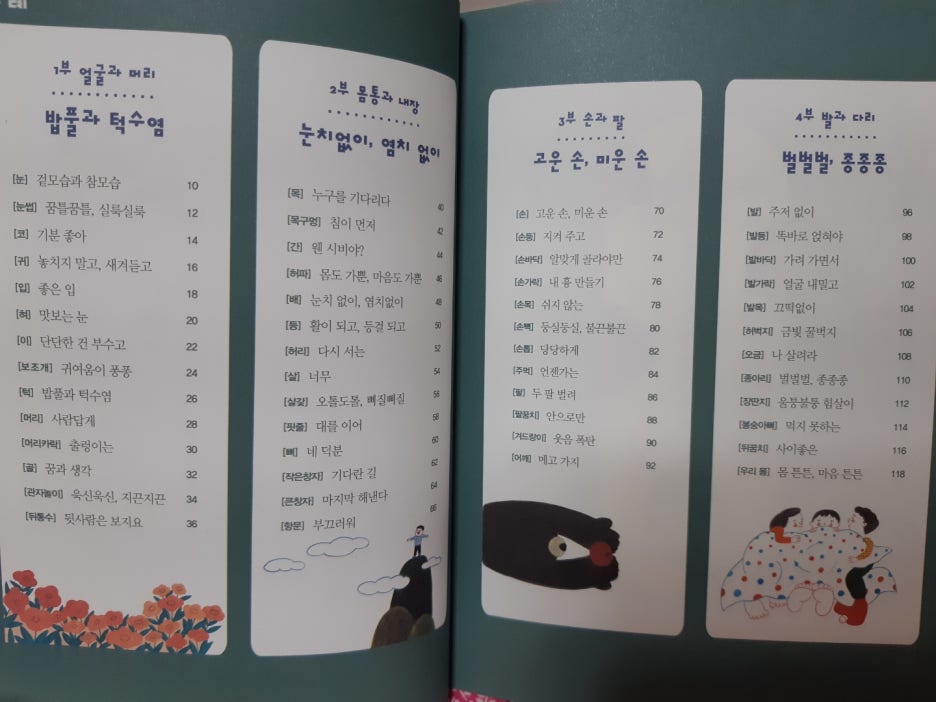 레
1부 얼굴과 머리
밥풀과 턱수염
[눈] 겉모습과 참모습 10
[눈썹] 꿈틀꿈틀, 실룩실룩 12
[코] 기분 좋아 14
[귀] 놓치지 말고, 새겨듣고 16
[입] 좋은 입 18
[혀] 맛보는 눈 20
[이] 단단한 건 부수고 22
[보조개] 귀여움이 퐁퐁 24
[턱] 밥풀과 턱수염 26
[머리] 사람답게 28
[머리카락] 출렁이는 30
[골] 꿈과 생각 32
[관자놀이] 욱신욱신, 지끈지끈 34
[뒤통수] 뒷사람은 보지요 36
2부 몸통과 내장
눈치없이, 염치 없이
[목] 누구를 기다리다 40
[목구멍] 침이 먼저 42
[간] 웬 시비야? 44
[허파] 몸도 가뿐, 마음도 가뿐 46
[배] 눈치 없이, 염치없이 48
[등] 활이 되고, 등걸 되고 50
[허리] 다시 서는 52
[살] 너무 54
[살갗] 오톨도톨, 삐질삐질 56
[핏줄] 대를 이어 58
[뼈] 네 덕분 60
[작은창자] 기다란 길 62
[큰창자] 마지막 해낸다 64
[항문] 부끄러워 66
3부 손과 팔
고운 손, 미운 손
[손] 고운 손, 미운 손 70
[손등] 지켜 주고 72
[손바닥] 알맞게 골라야만 74
[손가락] 내 흉 만들기 76
[손목] 쉬지 않는 78
[손뼉] 둥실둥실, 불끈불끈 80
[손톱] 당당하게 82
[주먹] 언젠가는 84
[팔] 두 팔 벌려 86
[팔꿈치] 안으로만 88
[겨드랑이] 웃음 폭탄 90
[어깨] 메고 가지 92
4부 발과 다리
벌벌벌, 종종종
[발] 주저 없이 96
[발등] 똑바로 얹혀야 98
[발바닥] 가려 가면서 100
[발가락] 얼굴 내밀고 102
[발목] 끄떡없이 104
[허벅지] 금빛 꿀벅지 106
[오금] 나 살려라 108
[종아리] 벌벌벌, 종종종 110
[장딴지] 울퉁불퉁 힘살이 112
[봉숭아뼈] 먹지 못하는 114
[뒤꿈치] 사이좋은 116
[우리 몸] 몸 튼튼, 마음 튼튼 118